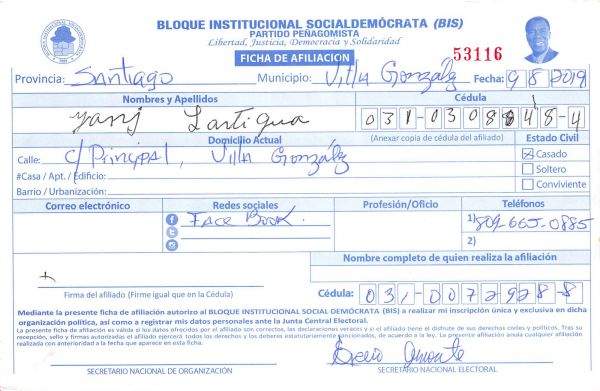 BLOQUE INSTITUCIONAL SOCIALDEMÓCRATA (BIS)
PARTIDO PEÑAGOMISTA
Libertad, Justicia, Democracia y Solidaridad
FICHA DE AFILIACION
53116
Provincia: Santiago Municipio: Villa González Fecha: 9/8/2019
Nombres y Apellidos
Cédula
Yanj Lartigua
Domicilio Actual
(Anexar copia de cédula del afiliado)
Estado Civil
Calle: C/Principal, Villa González
Casado
#Casa / Apt. / Edificio:
Soltero
Barrio / Urbanización:
Conviviente
Correo electrónico
Redes sociales
Profesión/Oficio
Teléfonos
Face Book.
1) 809-665-0885
2)
Nombre completo de quien realiza la afiliación
Firma del afiliado (Firme igual que en la Cédula)
Cédula: 031-0072928-8
Mediante la presente ficha de afiliación autorizo al BLOQUE INSTITUCIONAL SOCIAL DEMÓCRATA (BIS) a realizar mi inscripción única y exclusiva en dicha
organización política, así como a registrar mis datos personales ante la Junta Central Electoral.
La presente ficha de afiliación es válida si los datos ofrecidos por el afiliado son correctos, las declaraciones veraces y si el afiliado tiene el disfrute de sus derechos civiles y políticos. Tras su
recepción, sello y firmas autorizadas el afiliado ejercerá todos los derechos y los deberes estatutariamente sancionados, de acuerdo a la ley. La presente afiliación anula cualquier afiliación
realizada con anterioridad a la fecha que aparece en esta ficha.
SECRETARIO NACIONAL DE ORGANIZACIÓN
SECRETARIO NACIONAL ELECTORAL